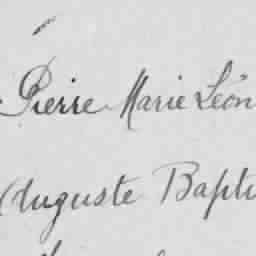 Pierre Marie Léon
Auguste Bapti